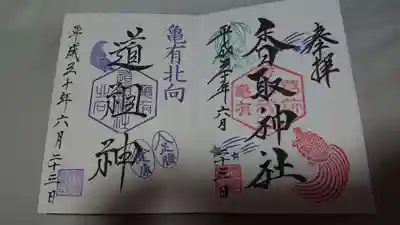 奉拝
香取神社
平成三十年六月二十三日
亀有
亀有北向
道祖神
足腰
健康
平成三十年六月二十三日